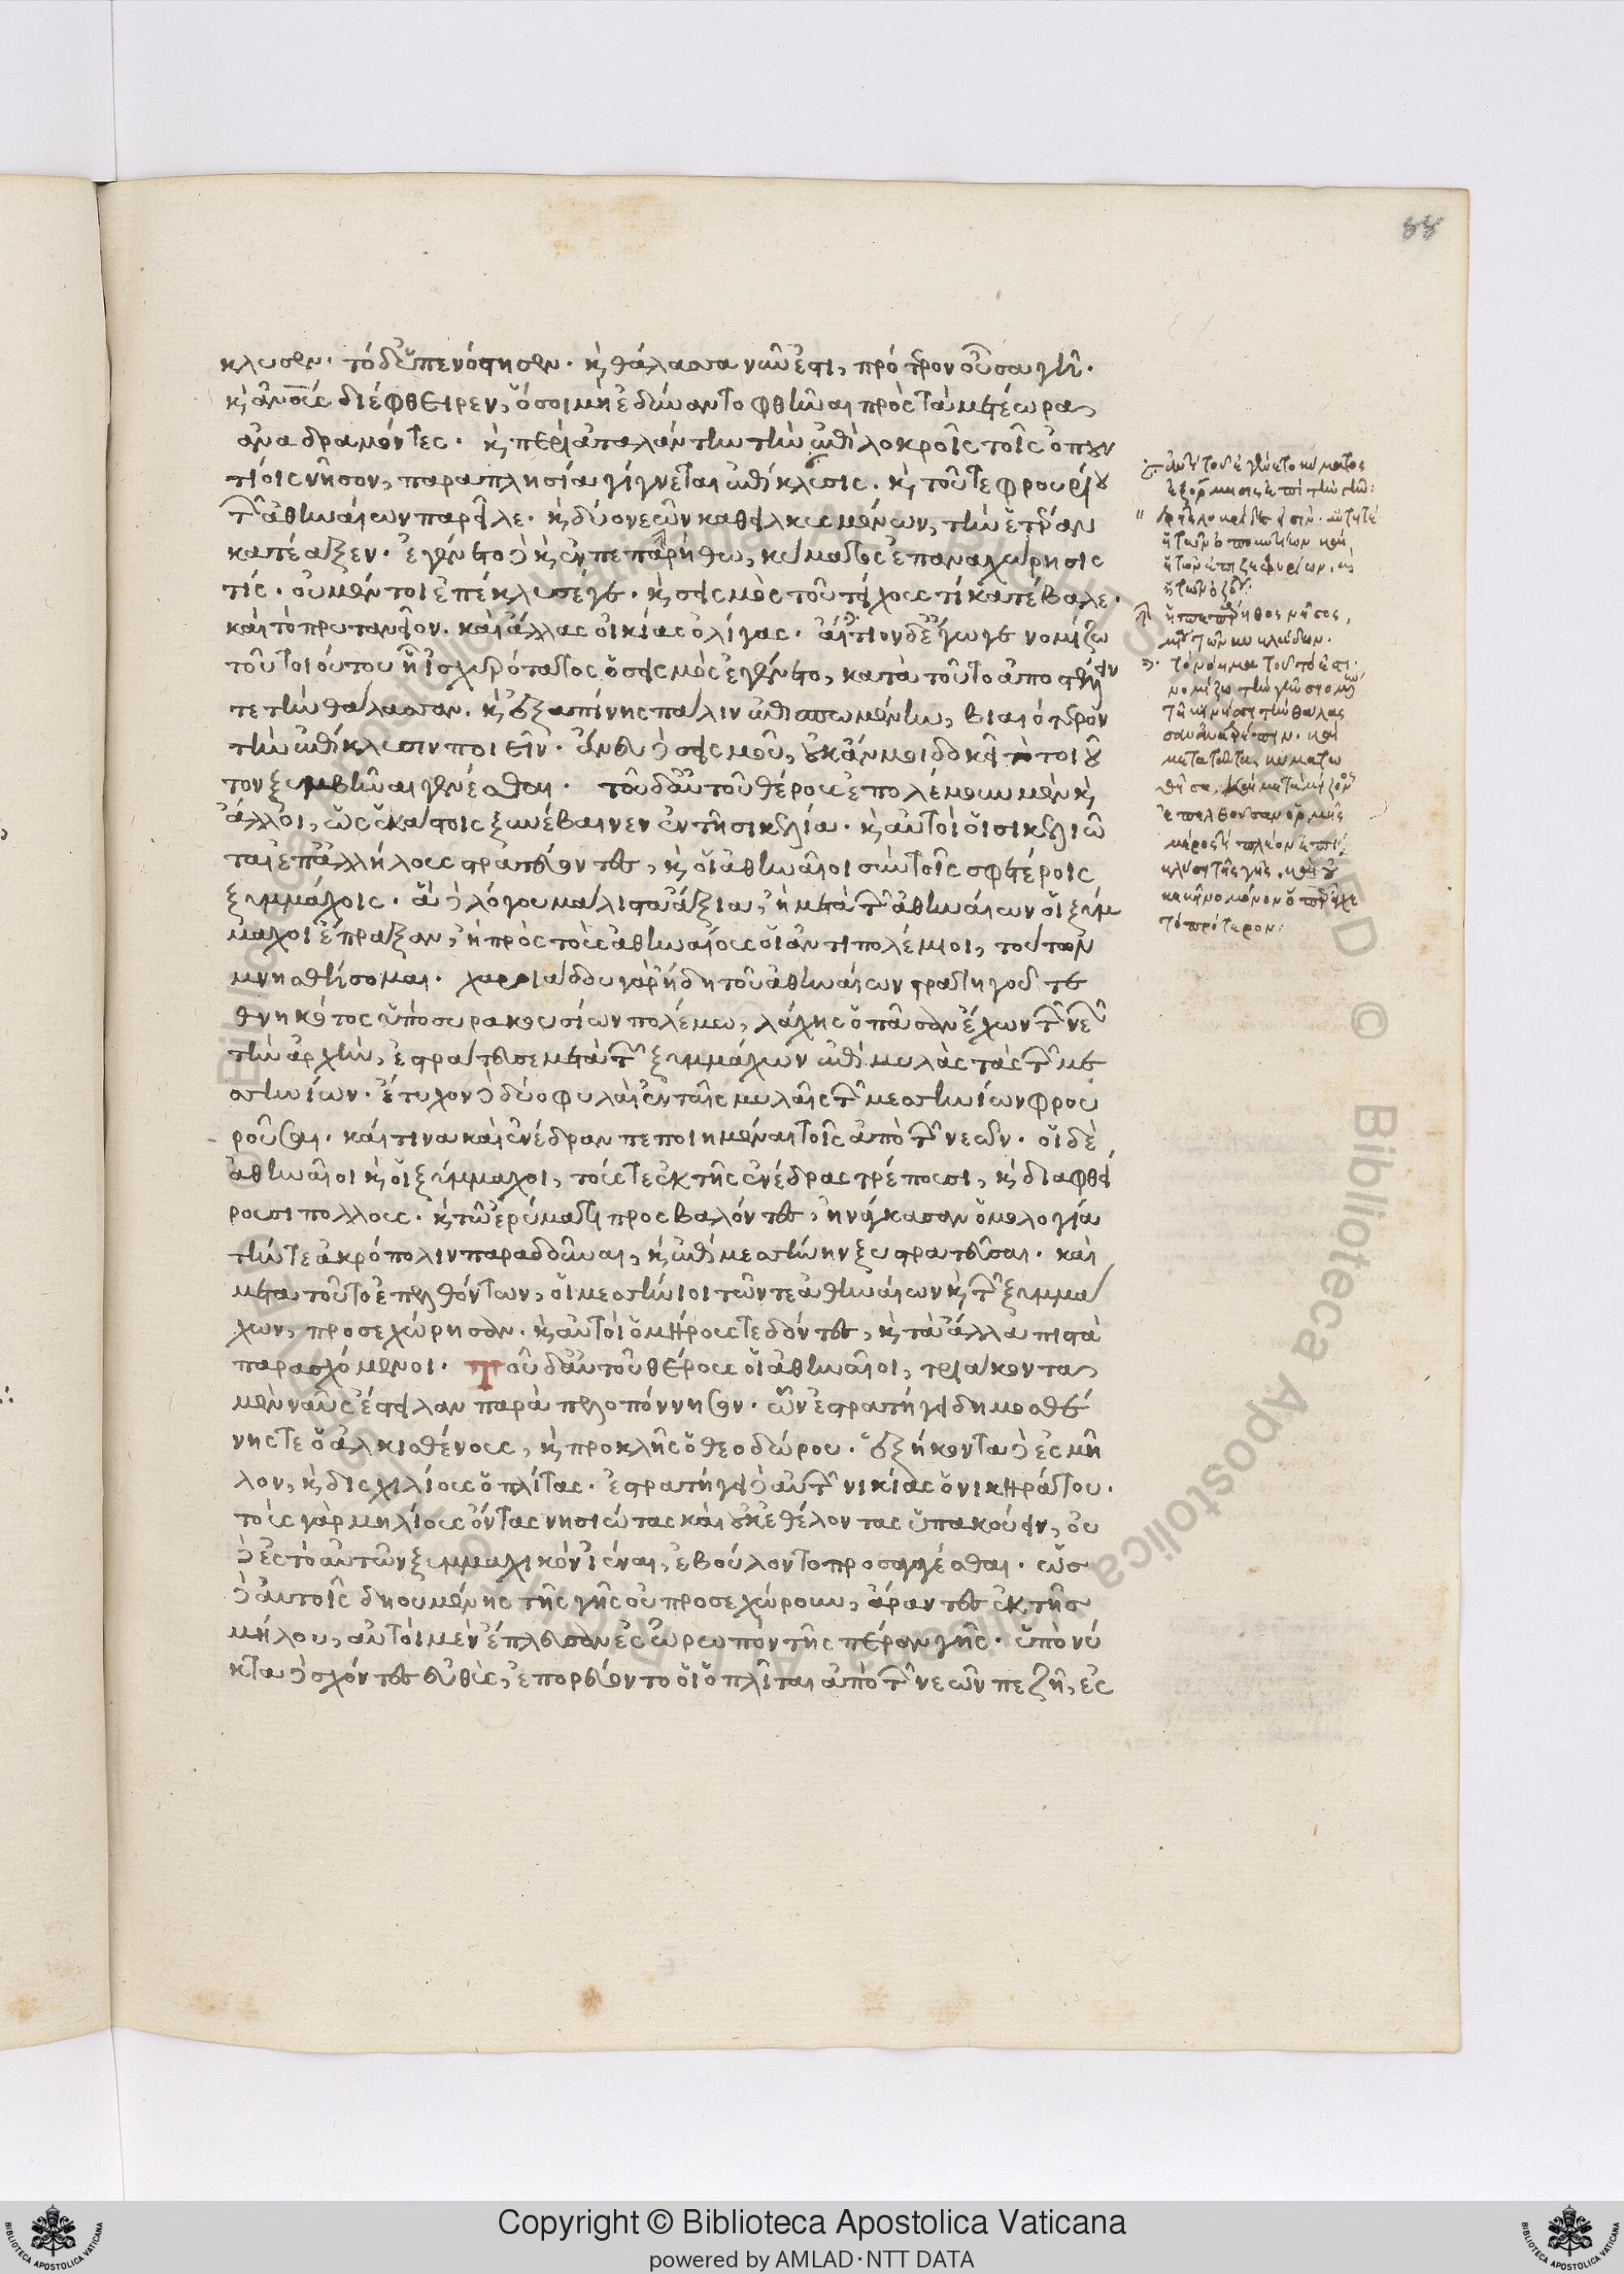 88
κλυσεν· τὸ δ' ὑπενόστησεν· ϗ θάλασσα νῦν ἐστι, πρότερον οὖσα γῆ·
ϗ ἀνο̅υς διέφθειρεν, ὅσοι μὴ ἐδύναντο φθῆναι πρὸς τὰ μετέωρα
ἀναδραμόντες· ϗ περὶ ἀταλάντην τὴν ἐπὶ λοκροῖς τοῖς ὀπουν
τίοις νῆσον, παραπλησία γίγνεται ἐπίκλυσις· ϗ τοῦ τε φρουρίου
τῶν ἀθηναίων παρεῖλε· ϗ δύο νεῶν καθειλκυσμένων, τὴν ἑτέραν
κατέαξεν· ἐγένετο δὲ ϗ ἐν πεπαρήθω, κύματος ἐπαναχώρησίς
τις· οὐ μέντοι ἐπέκλυσέ γε· ϗ σεισμὸς τοῦ τείχους τὶ κατέβαλε·
καὶ τὸ πρυτανεῖον· καὶ ἄλλας οἰκίας ὀλίγας· αἴτιον δὲ ἔγωγε νομίζω
τοῦ τοιούτου ἧ ἰσχυρότατος ὁ σεισμὸς ἐγένετο, κατὰ τοῦτο ἀποστέλλειν
τε τὴν θάλασσαν· ϗ ἐξαπίνης πάλιν ἐπισπωμένην, βιαιότερον
τὴν ἐπίκλυσιν ποιεῖν· ἄνευ δὲ σεισμοῦ, οὐκ ἄν μοι δοκεῖ τὸ τοιοῦ
τον ξυμβῆναι γενέσθαι· τοῦ δ' αὐτοῦ θέρους ἐπολέμουν μὲν ϗ
ἄλλοι, ὡς ἑκάστοις ξυνέβαινεν ἐν τῆ σικελία· ϗ αὐτοὶ οἱ σικελιῶ
ται ἐπ' ἀλλήλους στρατεύοντες, ϗ οἱ ἀθηναῖοι σὺν τοῖς σφετέροις
ξυμμάχοις· ἃ δὲ λόγου μάλιστα ἄξια, ἢ μετὰ τῶν ἀθηναίων οἱ ξύμ
μαχοι ἔπραξαν, ἢ πρὸς τοὺς ἀθηναίους οἱ ἀντιπολέμιοι, τούτων
μνησθήσομαι· χαροιάδου γὰρ ἤδη τοῦ ἀθηναίων στρατηγοῦ τε
θνηκότος ὑπὸ συρακουσίων πολέμω, λάχης ὁ πᾶσαν ἔχων τῶν νεῶν
τὴν ἀρχὴν, ἐστράτευσε μετὰ τῶν ξυμμάχων ἐπὶ μυλὰς τὰς τῶν με
σσηνίων· ἔτυχον δὲ δύο φυλαὶ ἐν ταῖς μυλαῖς τῶν μεσσηνίων φρου
ροῦσαι· καί τινα καὶ ἐνέδραν πεποιημέναι τοῖς ἀπὸ τῶν νεῶν· οἱ δὲ
ἀθηναῖοι ϗ οἱ ξύμμαχοι, τούς τε ἐκ τῆς ἐνέδρας τρέπουσι, ϗ διαφθεί
ρουσι πολλούς· ϗ τῶ ἐρύματι προσβαλόντες, ἠνάγκασαν ὁμολογία
τήν τε ἀκρόπολιν παραδοῦναι, ϗ ἐπὶ μεσσήνην ξυστρατεῦσαι· καὶ
μετὰ τοῦτο ἐπελθόντων, οἱ μεσσήνιοι τῶν τε ἀθηναίων ϗ τῶν ξυμμά
χων, προσεχώρησαν· ϗ αὐτοὶ ὁμήρους τε δόντες, ϗ τὰ ἄλλα πιστὰ
παρασχόμενοι· Τοῦ δ' αὐτοῦ θέρους οἱ ἀθηναῖοι, τριάκοντα
μὲν ναῦς ἔστειλαν παρὰ πελοπόννησον· ὧν ἐστρατήγει δημοσθέ
νης τε ὁ ἀλκισθένους, ϗ προκλῆς ὁ θεοδώρου· ἑξήκοντα δὲ ἐς μῆ
λον, ϗ δισχιλίους ὁπλίτας· ἐστρατήγει δὲ αὐτῶν νικίας ὁ νικηράτου·
τοὺς γὰρ μηλίους ὄντας νησιώτας καὶ οὐκ ἐθέλοντας ὑπακούειν, οὐ
δὲ ἐς τὸ αὐτῶν ξυμμαχικὸν ἰέναι, ἐβούλοντο προσαγαγέσθαι· ὡς
δὲ αὐτοῖς δηουμένης τῆς γῆς οὐ προσεχώρουν, ἄραντες ἐκ τῆς
μήλου, αὐτοὶ μὲν ἔπλευσαν ἐς ὠρωπὸν τῆς πέραν γῆς· ὑπὸ νύ
κτα δὲ σχόντες εὐθὺς, ἐπορεύοντο οἱ ὁπλῖται ἀπὸ τῶν νεῶν πεζῆ, ἐς
ἡ πεπάρηθος νῆσος,
μία τῶν κυκλάδων·
τὸ νόημα τοῦτό ἐστι·
τῆ κινήσει τὴν θάλας
τὸ πρότερον: